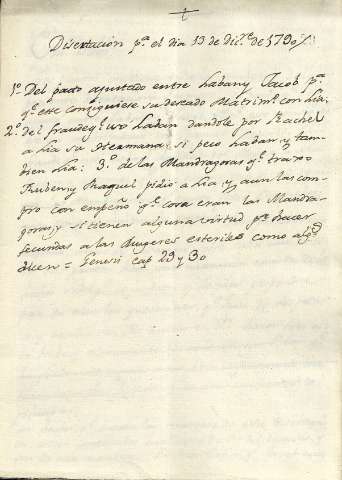 Disertacion pª el dia 13 de Dicᵉ de 1790
1º Del pacto ajustado entre Laban y Jacob pª
qᵉ este consiguiese su deseado Matrimº con Lia
2º del fraude qᵉ usó Laban dandole por Rachel
a Lia su Hermana: si peco Laban y tam-
bien Lia: 3º de las Mandragoras qᵉ traxo
Ruben y Raquel pidio a Lia y aun las com-
pro con empeño qᵉ cosa eran las Mandra-
goras, y si tienen alguna virtud pª hacer
fecundas a las Mugeres esteriles como algˢ
dicen = Genesis cap 29 y 30